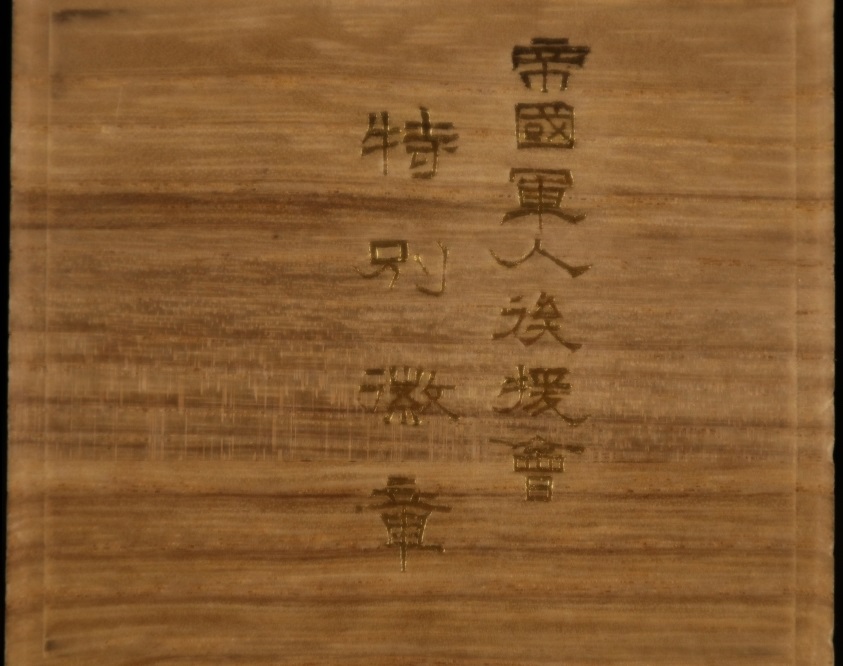 帝國軍人後援會
特別徽章